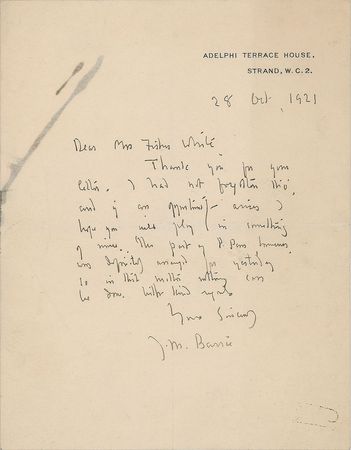 ADELPHI TERRACE HOUSE,
STRAND, W.C.2.
28 Oct, 1921
Dear Mrs Fisher White
Thank you for your
letter. I had not forgotten tho',
and if an opportunity arises I
hope you will play in something
of mine. The part of P. Pans
was definitely arranged for yesterday
so in that matter nothing can
be done. With kind regards
Yours Sincerely
J. M. Barrie